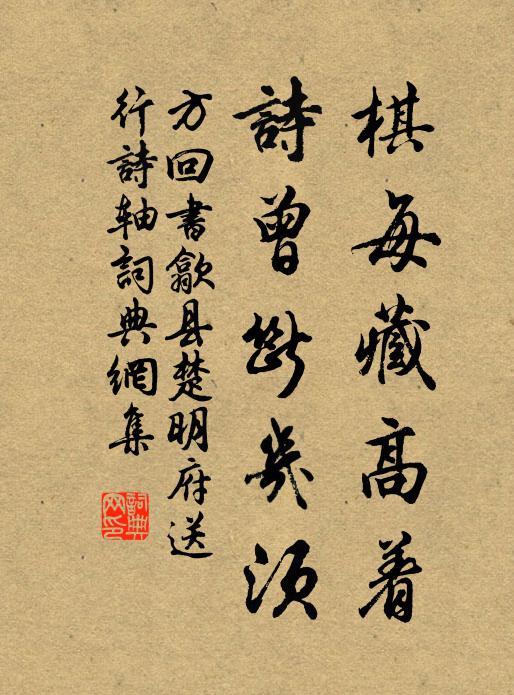 棋每藏高着
詩曾斷幾須
方回書歙县楚明府送
行詩轴詞典網集
詞典網印